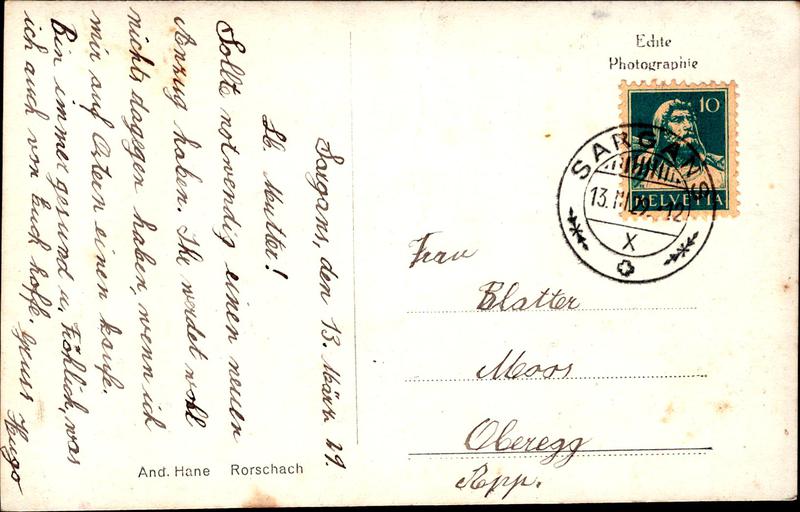 Sargans, den 13. März 29.
Lb. Mutter!
Sollte notwendig einen neuen
Anzug haben. Ihr werdet wohl
nichts dagegen haben, wenn ich
mir auf Ostern einen kaufe.
Bin immer gesund u. fröhlich, was
ich auch von Euch hoffe. Gruss Hugo
And. Hane Rorschach
Echte
Photographie
10
HELVETIA
SARGANS
13.III.29.-12
X
Frau
Blatter
Moos
Oberegg
App.